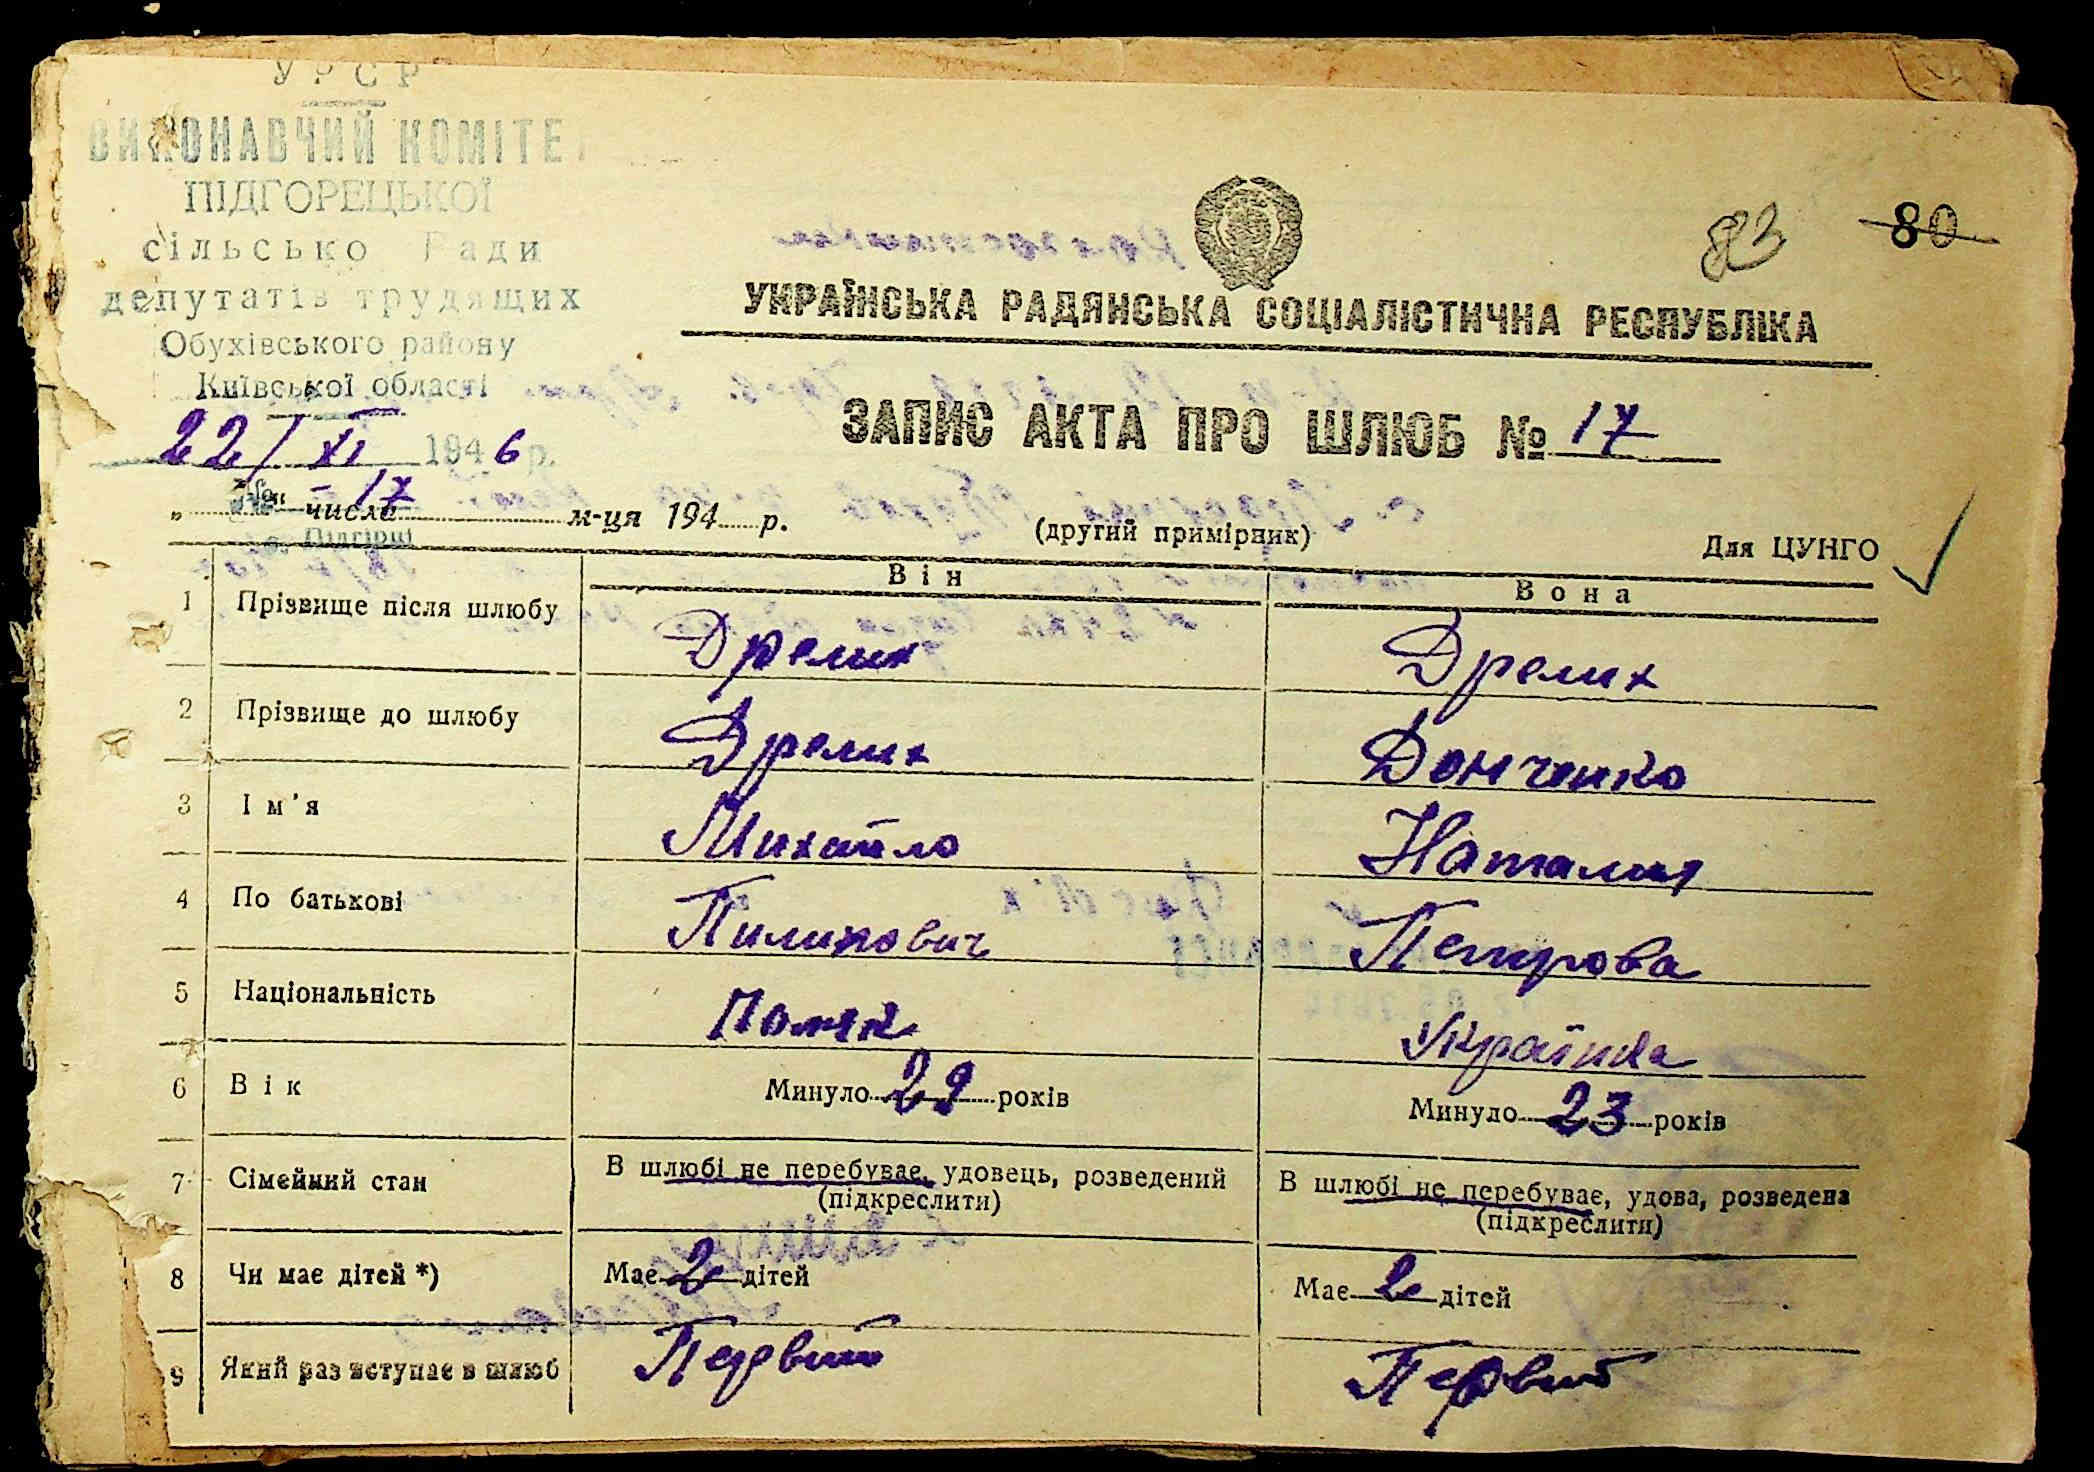 УРСР
ВИКОНАВЧИЙ КОМІТЕ
ПІДГОРЕЦЬКОЇ
сільсько Ради
депутатів трудящих
Обухівського району
Київської області
22/XI 1946 р.
№ 17
с. Підгірці
83
80
УКРАЇНСЬКА РАДЯНСЬКА СОЦІАЛІСТИЧНА РЕСПУБЛІКА
ЗАПИС АКТА ПРО ШЛЮБ № 17
„ " числа м-ця 194 р.
(другий примірник)
Для ЦУНГО
Він Вона
1 Прізвище після шлюбу Дрелих Дрелих
2 Прізвище до шлюбу Дрелих Донченко
3 Ім'я Михайло Наталия
4 По батькові Пилипович Петрова
5 Національність Поляк Українка
6 Вік Минуло 29 років Минуло 23 років
7 Сімейний стан В шлюбі не перебуває, удовець, розведений (підкреслити) В шлюбі не перебуває, удова, розведена (підкреслити)
8 Чи має дітей *) Має 2 дітей Має 2 дітей
9 Який раз вступає в шлюб Первий Первий